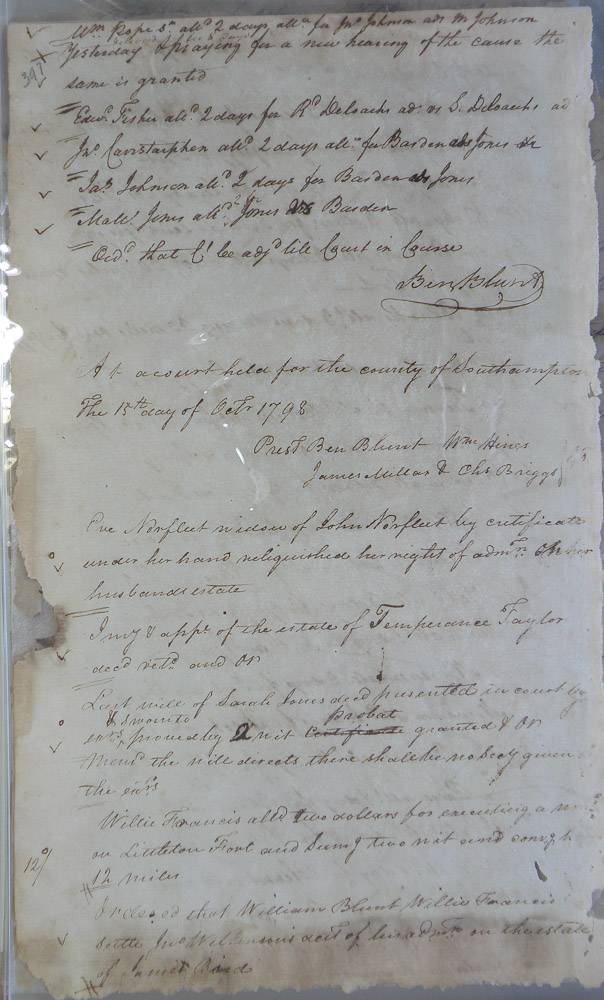 Wm Pope Sr alld 2 days alle for Jno Johnson ads M Johnson
Yesterday & praying for a new hearing of the cause the
397
same is granted
Edwd Fisher alld 2 days for Rd Deloachs ads vs S. Deloachs
Jno Carrstarphen alld 2 days alle for Barden ads Jones
Jas Johnson alld 2 days for Barden ads Jones
Mattw Jones alld Jones vs Barden
Ordd that Ct be adjd till Court in Course
Ben Blunt
At a court held for the county of Southampton
The 15th day of Octr 1798
Prest Ben Blunt Wm Hines
James Millar & Chs Briggs
Eve Norfleet widow of John Norfleet by certificate
under her hand relinquished her right of admrn on her
husbands estate
Invy & appt of the estate of Temperance Taylor
decd retd and Or
Last will of Sarah Jones decd presented in court by
& sworn to
Probat
exrs, proved by 2 wit Certificate granted & Or
Memd the will directs there shall be no Secy given
the exrs
Willie Francis alld two dollars for executing a
on Littleton Fort and Sumg two wit and convg h
12/
12 miles
Ordered that William Blunt Willie Francis
settle Jno Wilkinson's acct of his admrn on the estate
of James Bird